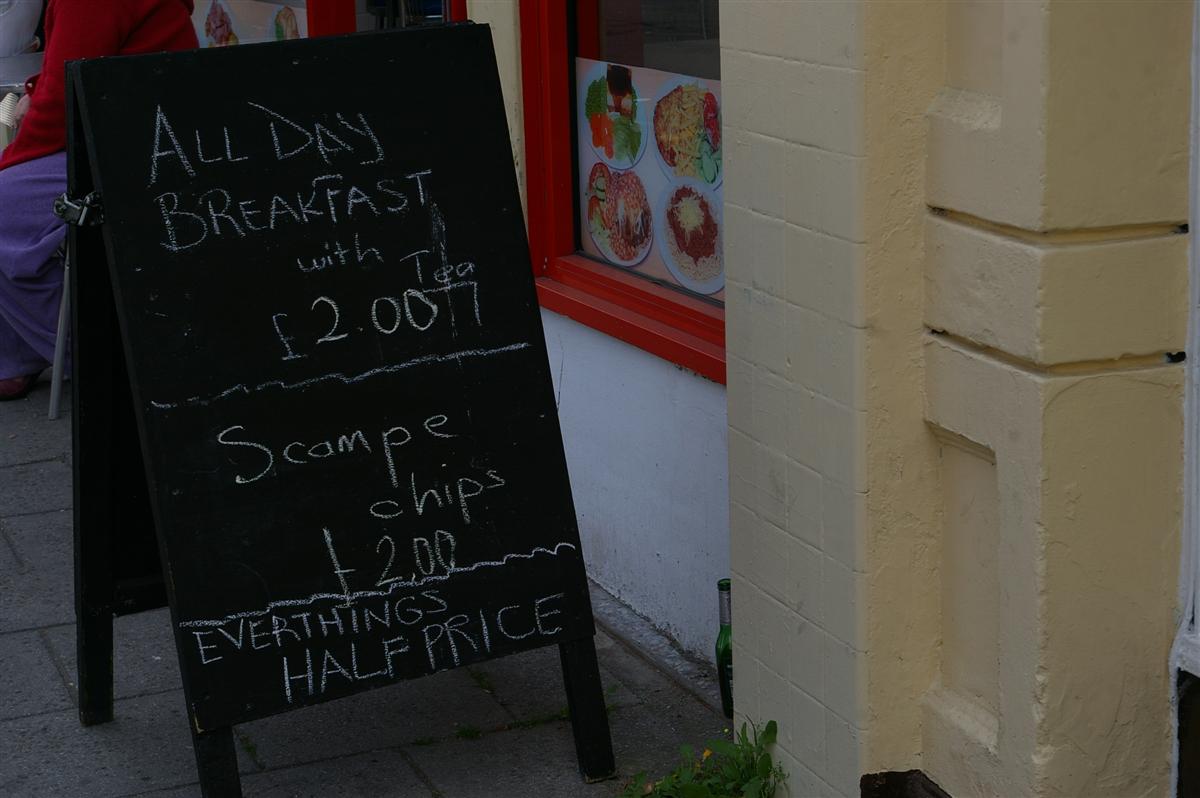 ALL DAY
BREAKFAST
with Tea
£2.00
Scampe
chips
£2.00
EVERTHINGS
HALF PRICE